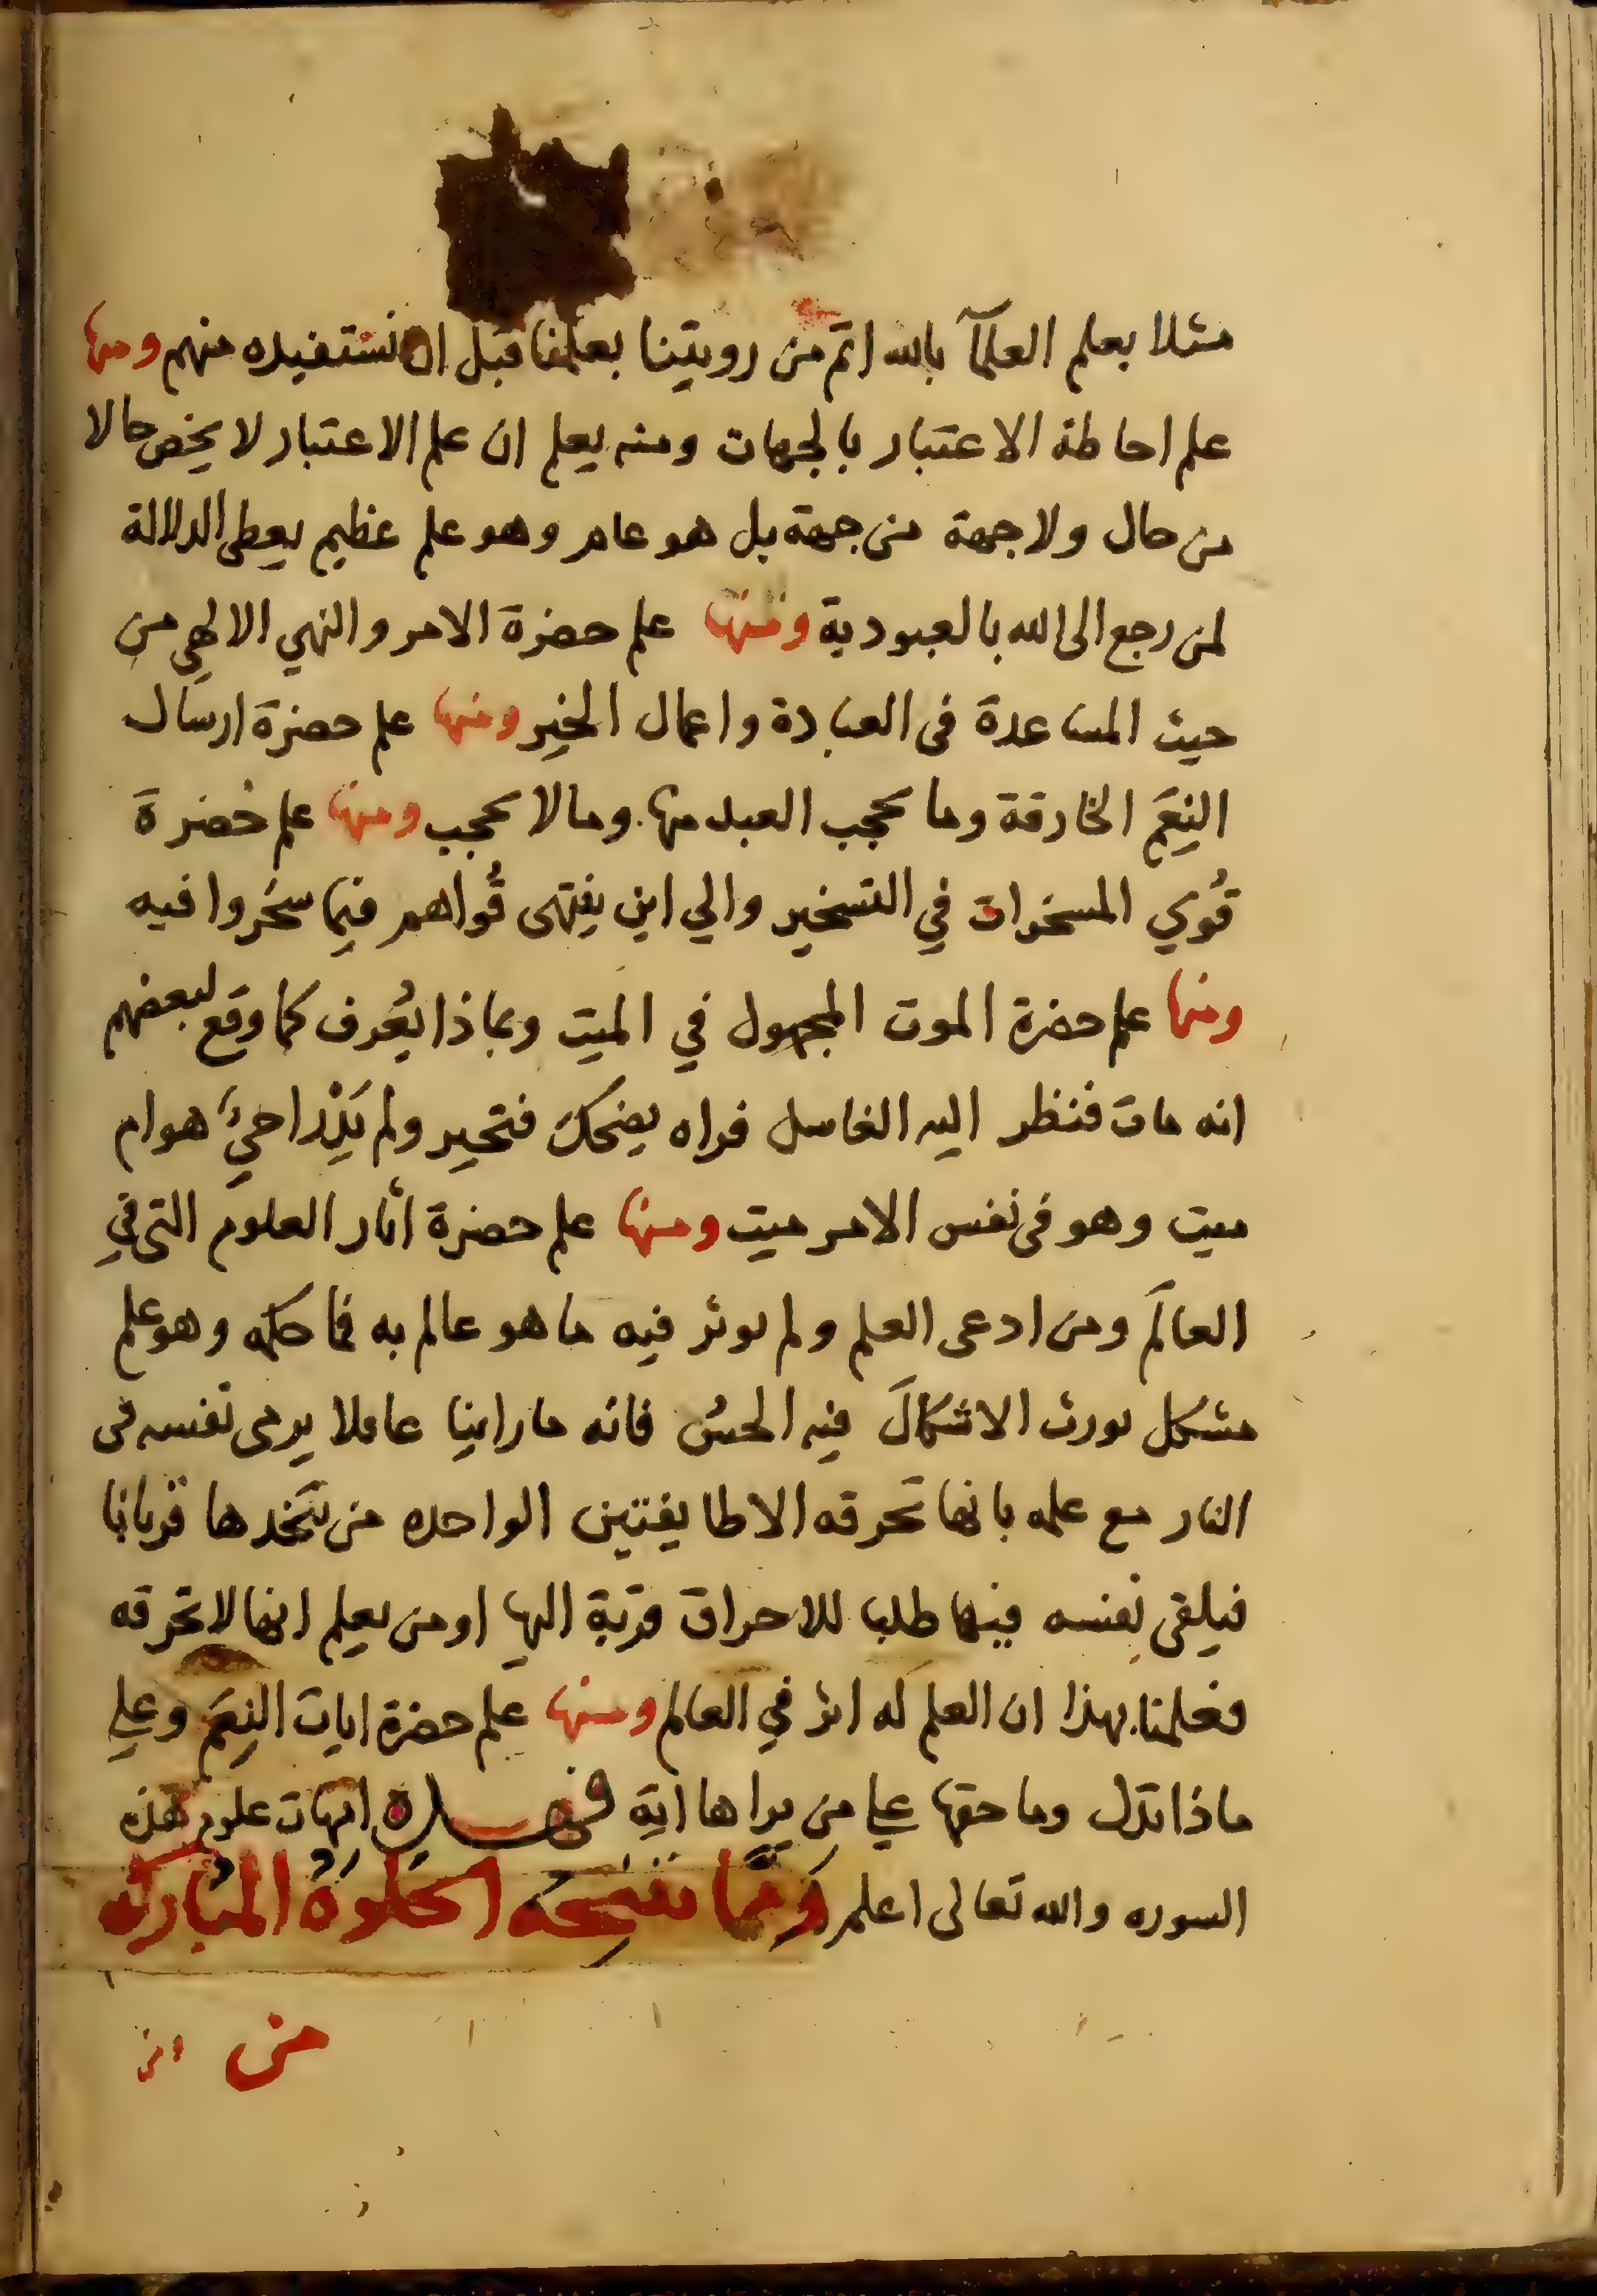 مثلا بعلم العلمآ بالله اتم من رويتنا بعلمنا قبل ان نستفيده منهم ومنها
علم احاطة الاعتبار بالجهات ومنه يعلم ان علم الاعتبار لا يخص حالا
من حال ولا جهة من جهة بل هو عام وهو علم عظيم يعطى الدلالة
لمن رجع الى الله بالعبودية ومنها علم حضرة الامر والنهي الالهي من
حيث المساعدة فى العبادة واعمال الخير ومنها علم حضرة ارسال
النِعَم الخارقة وما يحجب العبد منها وما لا يحجب ومنها علم حضرة
قُوي المسخرات في التسخير والي اين ينتهى قُواهم فيما سخروا فيه
ومنها علم حضرة الموت المجهول في الميت وبماذا يُعرف كما وقع لبعضهم
انه مات فنظر اليه الغاسل فراه يضحك فتحير ولم يَدْر احيٌ هو ام
ميت وهو فى نفس الامر ميت ومنها علم حضرة اثار العلوم التى في
العالَم ومن ادعى العلم ولم يوثر فيه ما هو عالم به فما حكمه وهو علم
مشكل يورث الاشكالَ فيه الحسُ فانه ما راينا عاقلا يرمى نفسه فى
النار مع علمه بانها تحرقه الا طايفتين الواحده من يتخذها قربانا
فيلقى نفسه فيها طلبا للاحراق قربة اليها او من يعلم انها لا تحرقه
فعلمنا بهذا ان العلم له اثر في العالم ومنها علم حضرة ايات النِعَم وعلي
ماذا تدل وما حقها علي من يراها اية فهذه امهات علوم هذه
السوره والله تعالى اعلم ومما تنتجه الخلوة المباركه
من